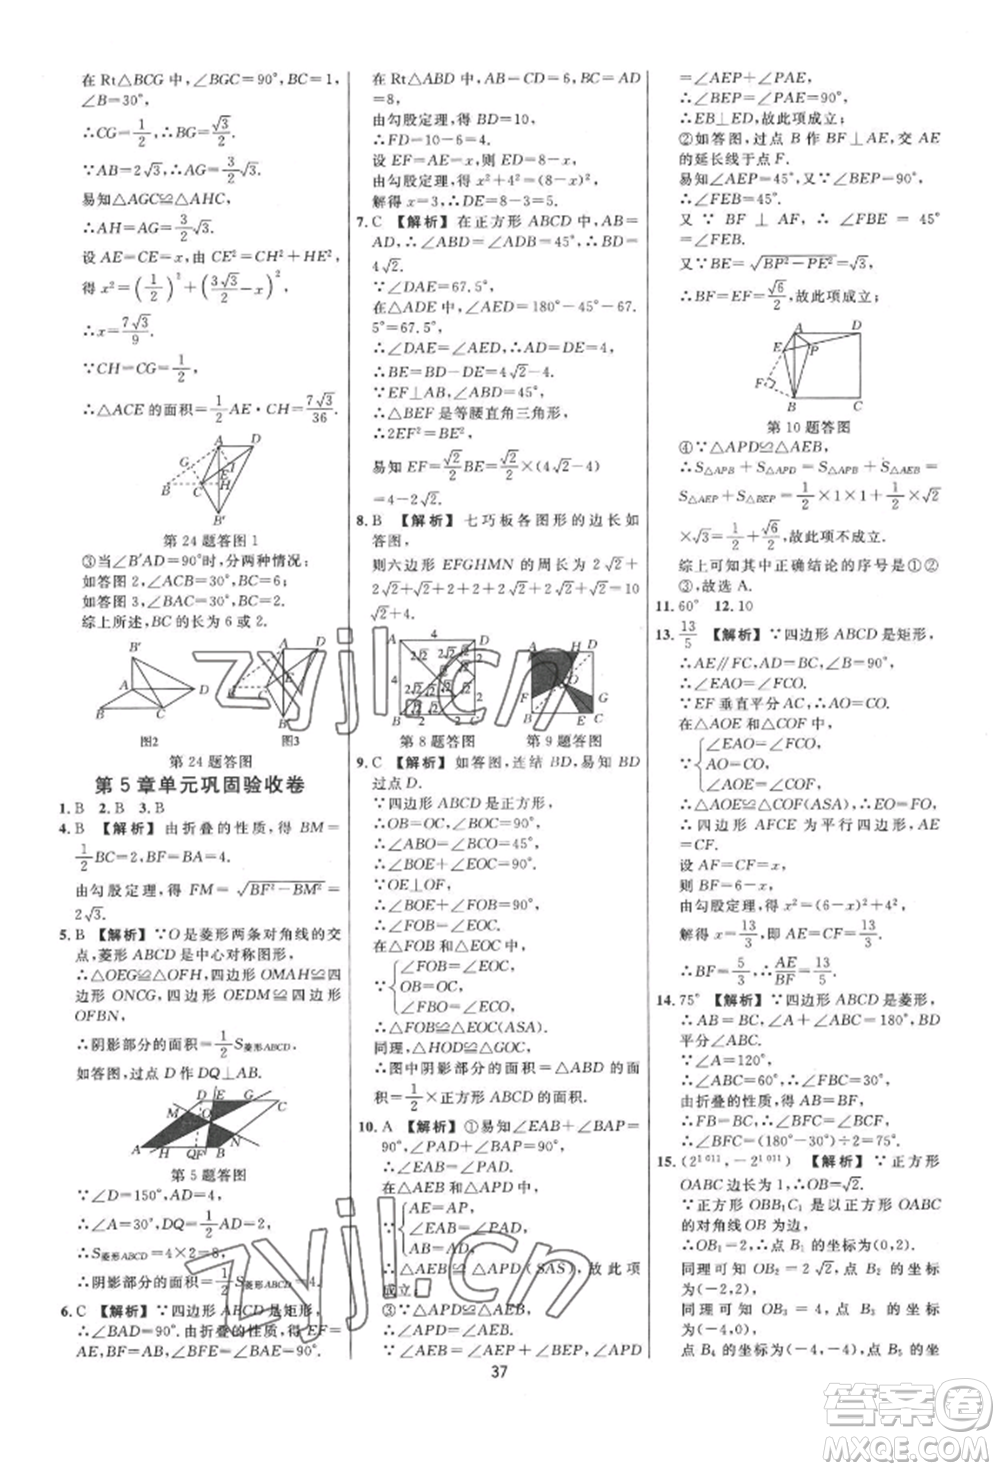 在 Rt△BCG 中,∠BGC=90°,BC=1,
∠B=30°,
∴CG=1/2,∴BG=√3/2.
∵AB=2√3,∴AG=3/2√3.
易知△AGC≌△AHC,
∴AH=AG=3/2√3.
设 AE=CE=x,由 CE²=CH²+HE²,
得 x²=(1/2)²+(3√3/2-x)²,
∴x=7√3/9.
∵CH=CG=1/2,
∴△ACE 的面积=1/2AE·CH=7√3/36.
A D G I E B C H B′
第 24 题答图 1
③当∠B′AD=90°时,分两种情况:
如答图 2,∠ACB=30°,BC=6;
如答图 3,∠BAC=30°,BC=2.
综上所述,BC 的长为 6 或 2.
B′ A D B C
图2 图3
第 24 题答图
第 5 章单元巩固验收卷
1. B 2. B 3. B
4. B 【解析】由折叠的性质,得 BM=
1/2BC=2,BF=BA=4.
由勾股定理,得 FM=√(BF²-BM²)=
2√3.
5. B 【解析】∵O 是菱形两条对角线的交
点,菱形 ABCD 是中心对称图形,
∴△OEG≌△OFH,四边形 OMAH≌四
边形 ONCG,四边形 OEDM≌四边形
OFBN,
∴阴影部分的面积=1/2S菱形ABCD.
如答图,过点 D 作 DQ⊥AB.
D E G C M O N A H Q F B
第 5 题答图
∵∠D=150°,AD=4,
∴∠A=30°,DQ=1/2AD=2.
∴S菱形ABCD=4×2=8.
∴阴影部分的面积=1/2S菱形ABCD=4.
6. C 【解析】∵四边形 ABCD 是矩形,
∴∠BAD=90°.由折叠的性质,得 EF=
AE,BF=AB=6,∠BFE=∠A=90°.
在 Rt△ABD 中,AB=CD=6,BC=AD
=8,
由勾股定理,得 BD=10,
∴FD=10-6=4.
设 EF=AE=x,则 ED=8-x,
由勾股定理,得 x²+4²=(8-x)²,
解得 x=3,∴DE=8-3=5.
7. C 【解析】在正方形 ABCD 中,AB=
AD,∴∠ABD=∠ADB=45°,∴BD=
4√2.
∵∠DAE=67.5°,
在△ADE 中,∠AED=180°-45°-67.
5°=67.5°,
∴∠DAE=∠AED,∴AD=DE=4,
∴BE=BD-DE=4√2-4.
∵EF⊥AB,∠ABD=45°,
∴△BEF 是等腰直角三角形,
∴2EF²=BE²,
易知 EF=√2/2BE=√2/2×(4√2-4)
=4-2√2.
8. B 【解析】七巧板各图形的边长如
答图,
则六边形 EFGHMN 的周长为 2√2+
2√2+√2+2+2+2+√2+√2+√2=10
√2+6.
第 8 题答图 第 9 题答图
9. C 【解析】如答图,连结 BD,易知 BD
过点 O.
∵四边形 ABCD 是正方形,
∴OB=OC,∠BOC=90°,
∴∠ABO=∠BCO=45°,
∴∠BOE+∠EOC=90°.
∵OE⊥OF,
∴∠BOE+∠FOB=90°,
∴∠FOB=∠EOC.
在△FOB 和△EOC 中,
∵{∠FOB=∠EOC,
OB=OC,
∠FBO=∠ECO,
∴△FOB≌△EOC(ASA).
同理,△HOD≌△GOA.
∴图中阴影部分的面积=△ABD 的面
积=1/2×正方形 ABCD 的面积.
10. A 【解析】①易知∠EAB+∠BAP=
90°,∠PAD+∠BAP=90°,
∴∠EAB=∠PAD.
在△AEB 和△APD 中,
∵{AE=AP,
∠EAB=∠PAD,
AB=AD,
∴△AEB≌△APD(SAS),故此项
成立;
③∵△AEB≌△APD,
∴∠APD=∠AEB.
∵∠AEB=∠AEP+∠BEP,∠APD
=∠AEP+∠PAE,
∴∠BEP=∠PAE=90°,
∴EB⊥ED,故此项成立;
②如答图,过点 B 作 BF⊥AE,交 AE
的延长线于点 F.
易知∠AEP=45°,∠BEP=90°,
∴∠FEB=45°.
又∵BF⊥AF,∴∠FBE=45°
=∠FEB.
又∵BE=√(BP²-PE²)=√3,
∴BF=EF=√6/2,故此项成立;
A D E P F B C
第 10 题答图
④∵△APD≌△AEB,
∴S△APB+S△APD=S△APB+S△AEB=
S△AEP+S△BEP=1/2×1×1+1/2×√2
×√3=1/2+√6/2,故此项不成立.
综上可知其中正确结论的序号是①②
③,故选 A.
11. 60° 12. 10
13. 13/5 【解析】∵四边形 ABCD 是矩形,
∴AE∥FC,AD=BC,∠B=90°,
∴∠EAO=∠FCO.
∵EF 垂直平分 AC,∴AO=CO.
在△AOE 和△COF 中,
∵{∠EAO=∠FCO,
AO=CO,
∠AOE=∠COF,
∴△AOE≌△COF(ASA),∴AE=CF,
∴四边形 AFCE 为平行四边形,AE
=CF.
设 AF=CF=x,
则 BF=6-x,
由勾股定理,得 x²=(6-x)²+4²,
解得 x=13/3,即 AE=CF=13/3,
∴BF=5/3,∴AE/BF=13/5.
14. 75° 【解析】∵四边形 ABCD 是菱形,
∴AB=BC,∠A+∠ABC=180°,BD
平分∠ABC.
∵∠A=120°,
∴∠ABC=60°,∴∠DBC=30°.
由折叠的性质,得 AB=BF,
∴FB=BC,∴∠BFC=∠BCF,
∴∠BFC=(180°-30°)÷2=75°.
15. (2¹⁰¹¹,-2¹⁰¹¹) 【解析】∵正方形
OABC 边长为 1,∴OB=√2.
∵正方形 OBB₁C₁ 是以正方形 OABC
的对角线 OB 为边,
∴OB₁=2,∴点 B₁ 的坐标为(0,2).
同理可知 OB₂=2√2,点 B₂ 的坐标
为(-2,2),
同理可知 OB₃=4,点 B₃ 的坐标为
(-4,0),
点 B₄ 的坐标为(-4,-4),点 B₅ 的坐标
37
zyjl.cn
zyjl.cn
答案圈
MXQE.COM